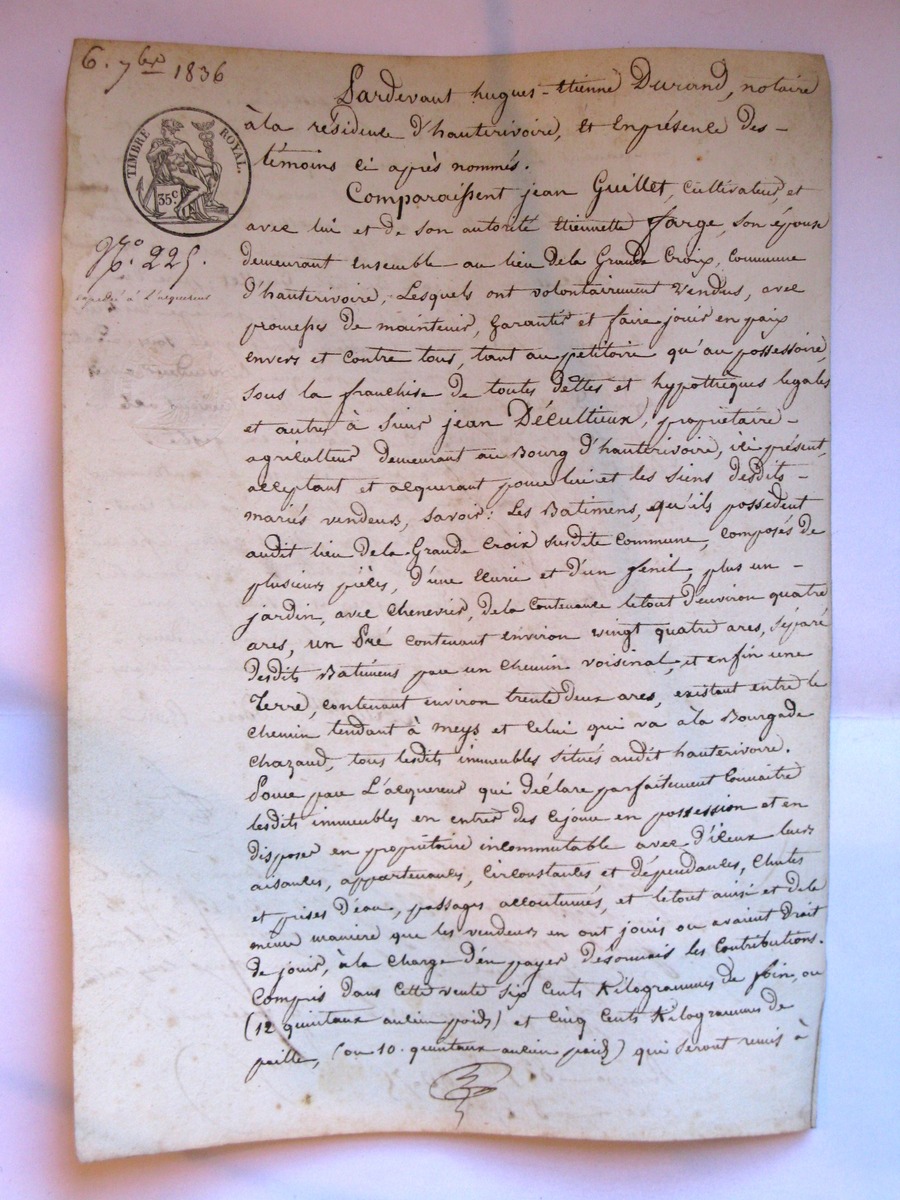 6. 7bre 1836
TIMBRE ROYAL.
35c
No. 225.
expédié à l'acquereur
Pardevant hugues-Etienne Durand, notaire
à la résidence d'hauterivoire, et en présence des-
témoins ci après nommés.
Comparaissent jean Guillet, cultivateur, et
avec lui et de son autorité Etiennette farge, son épouse
demeurant ensemble au lieu de la Grande Croix, commune
d'hauterivoire, Lesquels ont volontairement vendus, avec
promesses de maintenir, garantir et faire jouir en paix
envers et contre tous, tant au petitoire qu'au possessoire,
sous la franchise de toutes dettes et hypothèques legales
et autres à sieur jean Décultieux, propriétaire-
agriculteur demeurant au Bourg d'hauterivoire, ici présent,
acceptant et acquerant pour lui et les siens desdits-
mariés vendeurs, savoir: Les Batimens, qu'ils possèdent
audit lieu de la Grande Croix susdite commune, composés de
plusieurs pièces, d'une Ecurie et d'un fenil, plus un-
jardin, avec Chenevier, de la contenance le tout d'environ quatre
ares, un Pré contenant environ vingt quatre ares, séparé
desdits Batimens par un chemin voisinal, et enfin une
Terre, contenant environ trente deux ares, existant entre le
chemin tendant à meys et celui qui va à la Bourgade
Chazaud, tous lesdits immeubles situés audit hauterivoire.
Pour par L'acquereur qui déclare parfaitement connaitre
lesdits immeubles en entrer dès cejour en possession et en
disposer en propriétaire incommutable avec d'iceux leurs
aisances, appartenances, circonstances et dépendances, chutes
et prises d'eau, passages accoutumés, et le tout ainsi et de la
même manière que les vendeurs en ont jouis ou avaient droit
de jouir, à la charge d'en payer désormais les contributions.
Compris dans cette vente six cents Kilogrammes de foin, ou
(12 quintaux ancien poids) et cinq cents Kilogrammes de
paille, (ou 10. quintaux ancien poids) qui seront remis à